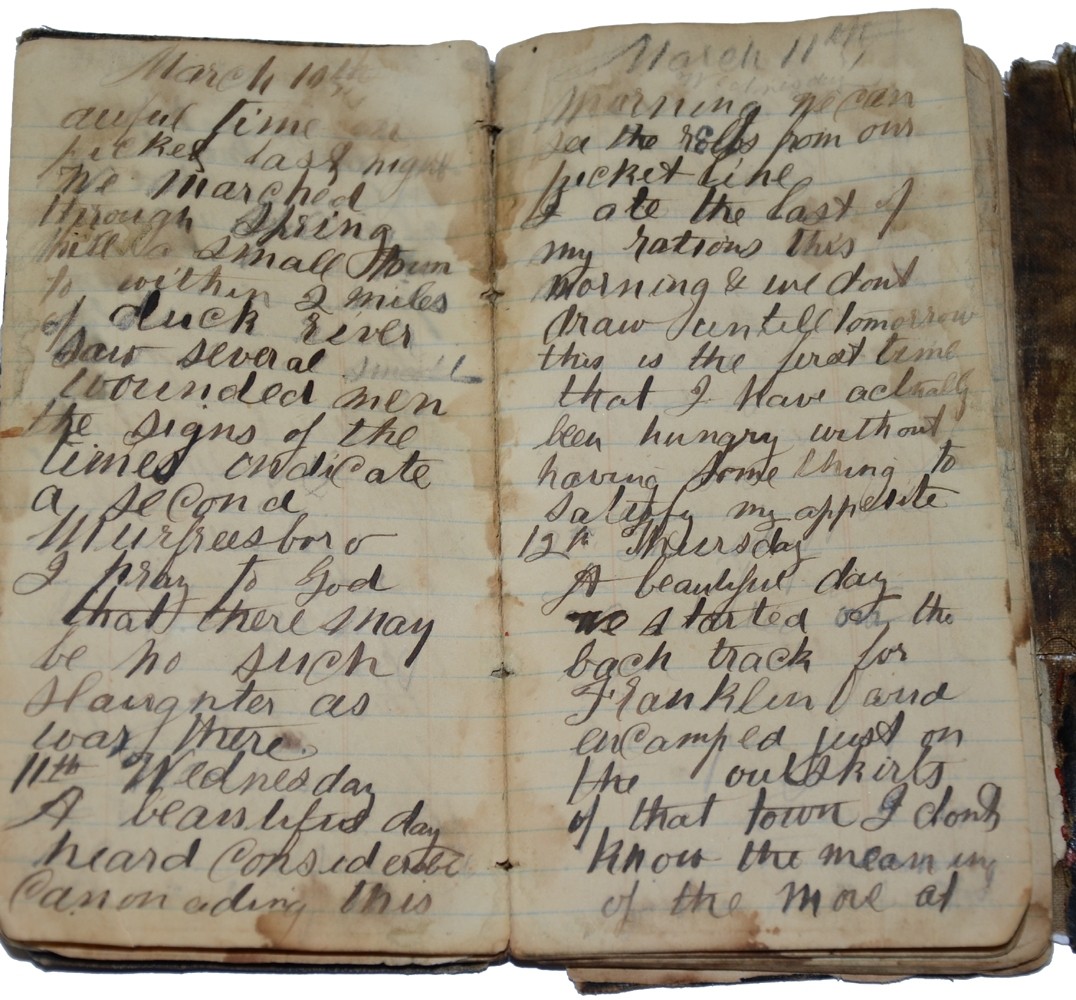 March 10th
awful time on
picket last night
We marched
through Spring
hill a small town
to within 2 miles
of duck river
saw several small
wounded men
the signs of the
times indicate
a second
Murfreesboro
I pray to God
that there may
be no such
slaughter as
was there.
11th Wednesday
A beautiful day
heard considerbl
canonading this
March 11th
Wednesday
morning we can
see the rebs from our
picket line
I ate the last of
my rations this
morning & we dont
draw untill tomorrow
this is the first time
that I have actually
been hungry without
having some thing to
satisfy my appetite
12th Thursday
A beautiful day
we started on the
back track for
Franklin and
encamped just on
the outskirts
of that town I dont
know the meaning
of the move at